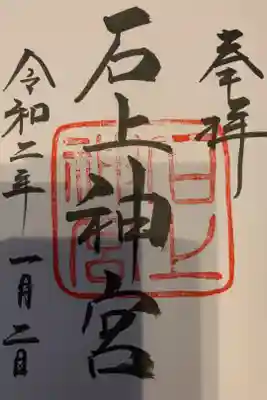 奉拝
石上神宮
石上神宮
令和二年 一月二日